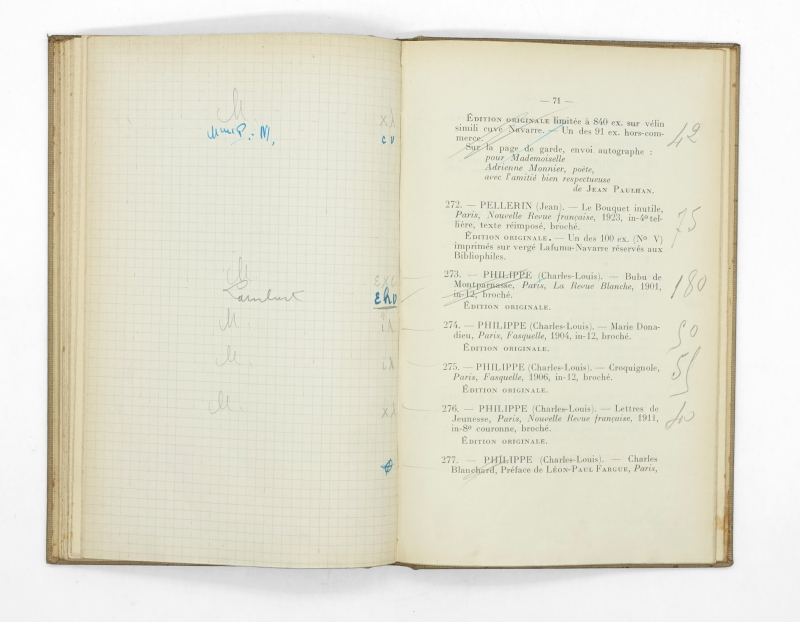 M
Mme P. : M.
c v
Lambert
Ehv
M.
M.
M.
— 71 —
ÉDITION ORIGINALE limitée à 840 ex. sur vélin
simili cuvé Navarre. — Un des 91 ex. hors-com-
merce.
Sur la page de garde, envoi autographe :
pour Mademoiselle
Adrienne Monnier, poète,
avec l'amitié bien respectueuse
de JEAN PAULHAN.
42
272. — PELLERIN (Jean). — Le Bouquet inutile,
Paris, Nouvelle Revue française, 1923, in-4º tel-
lière, texte réimposé, broché.
ÉDITION ORIGINALE. — Un des 100 ex. (Nº V)
imprimés sur vergé Lafuma-Navarre réservés aux
Bibliophiles.
75
273. — PHILIPPE (Charles-Louis). — Bubu de
Montparnasse, Paris, La Revue Blanche, 1901,
in-12, broché.
ÉDITION ORIGINALE.
180
274. — PHILIPPE (Charles-Louis). — Marie Dona-
dieu, Paris, Fasquelle, 1904, in-12, broché.
ÉDITION ORIGINALE.
50
275. — PHILIPPE (Charles-Louis). — Croquignole,
Paris, Fasquelle, 1906, in-12, broché.
ÉDITION ORIGINALE.
55
276. — PHILIPPE (Charles-Louis). — Lettres de
Jeunesse, Paris, Nouvelle Revue française, 1911,
in-8º couronne, broché.
ÉDITION ORIGINALE.
40
277. — PHILIPPE (Charles-Louis). — Charles
Blanchard, Préface de LÉON-PAUL FARGUE, Paris,